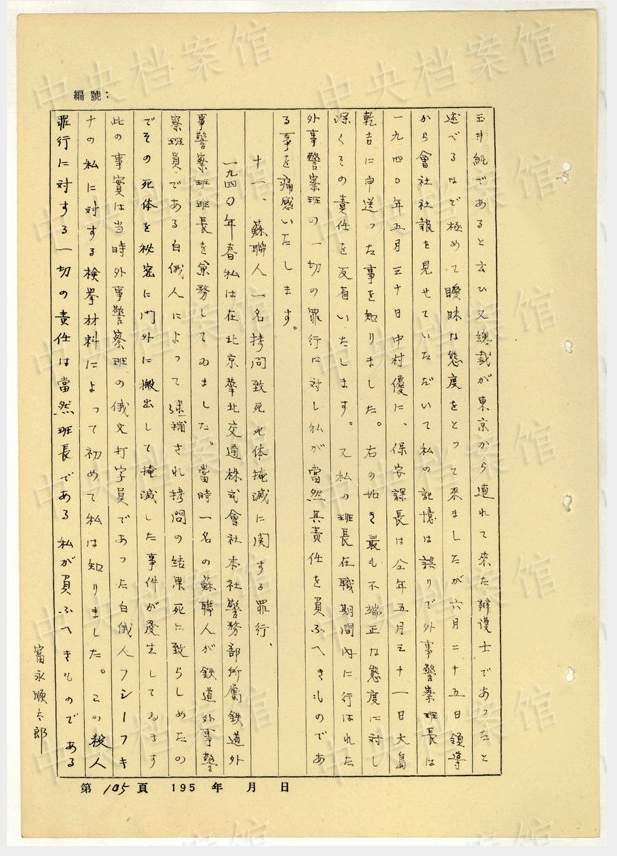 編號：
玉井　であると云ひ又総裁が東京から連れて来た辯護士であったと
述べるなで極めて曖昧な態度をとって来ましたが六月二十五日領導
から會社社報を見せていただいて私の記憶は誤りで外事警察班長は
一九四〇年五月三十日中村優に、保安課長は仝年五月三十一日大島
乾吉に申送った事を知りました。右の如き最も不端正な態度に対し
深くその責任を反省いたします。又私の班長在職期間内に行はれた
外事警察班の一切の罪行に対し私が當然其責任を員ふべきものであ
る事を痛感いたします。
十一、蘇聯人一名拷問致死死体掩滅に関する罪行、
一九四〇年春私は在北京華北交通株式會社本社警務部所属鉄道外
事警察班班長を兼務してゐました。當時一名の蘇聯人が鉄道外事警
察班員である白俄人によって逮捕され拷問の結果死に致らしめたの
でその死体を秘密に門外に搬出して掩滅した事件が発生してゐます
此の事實は当時外事警察班の俄文打字員であった白俄人フシーフキ
ナの私に対する検挙材料によって初めて私は知りました。この殺人
罪行に対する一切の責任は當然班長である私が員ふべきものである
富永順太郎
第105頁　195　年　月　日
中央档案馆